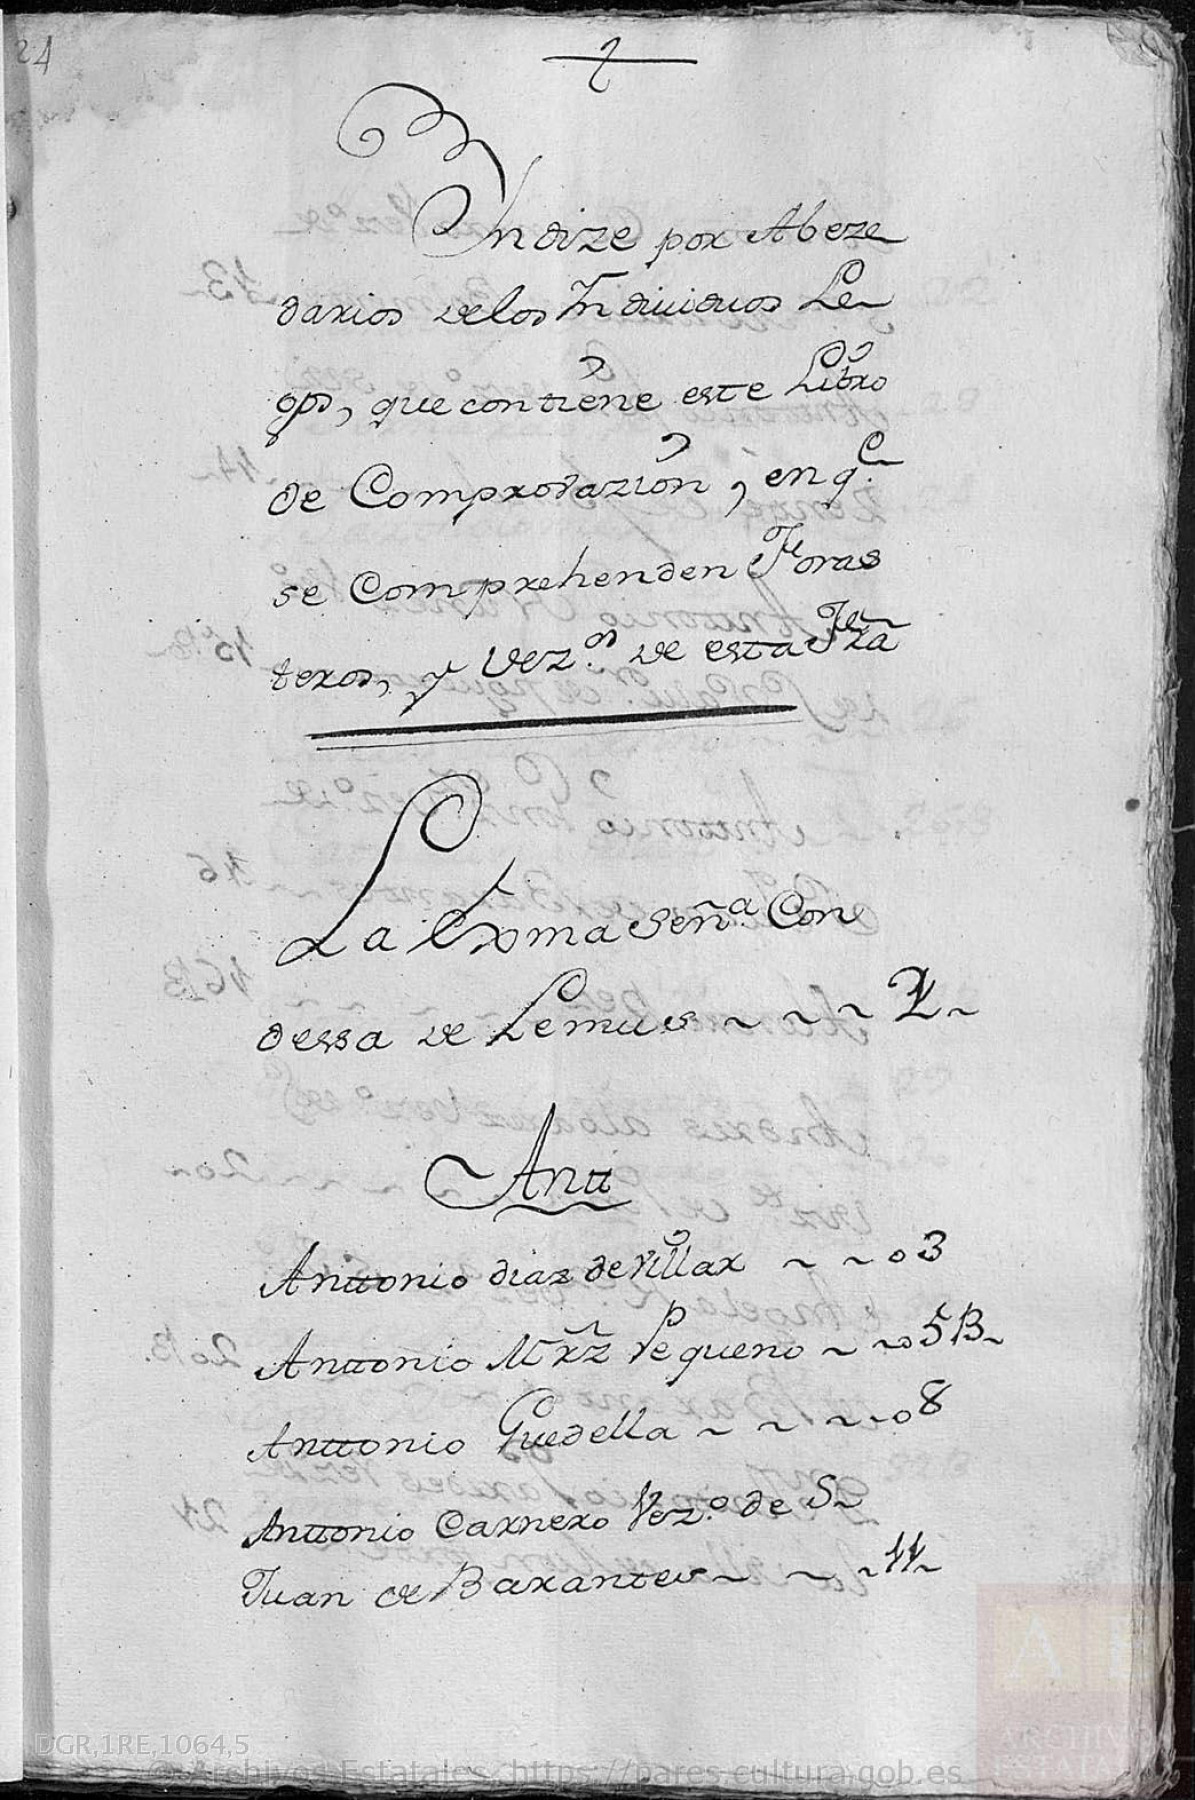 24
Yndize por Abeze
darios de los Yndiuiduos Le
gos, que contiene este Libro
de Comprovazion, en q.e
se Comprehenden Foras
teros, y Vez.os de esta Frâ
La Exma Señ.a Con
dessa de Lemus ~ ~ ~ 1 ~
Antt
Anttonio diaz de Villar ~ ~ o 3
Anttonio Mrz̃ Pequeno ~ ~o 5B~
Anttonio Guedella ~ ~ ~ ~ o 8
Anttonio Carnero Vez.o de S~
Juan de Barantes ~ ~ ~ 11~
DGR,1RE,1064,5
© Archivos Estatales, https://pares.cultura.gob.es
ARCHIVO
ESTATA